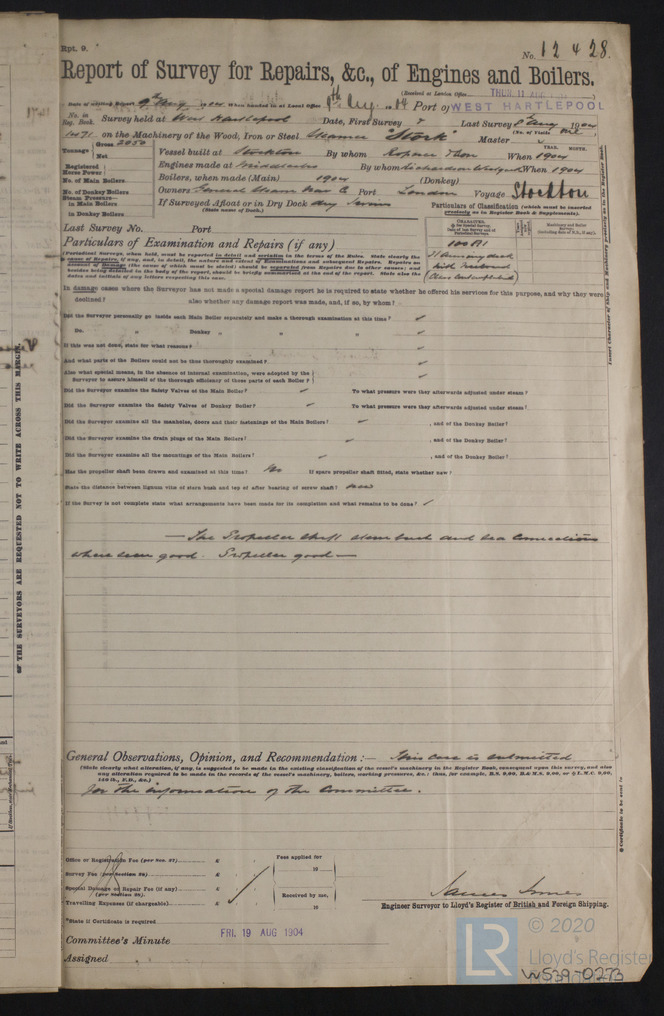 Rpt. 9.
No. 12428.
Report of Survey for Repairs, &c., of Engines and Boilers.
(Received at London Office THUR. 11 AUG
Date of writing Report 9th Aug 1904 When handed in at Local Office 9th Aug. 04 Port of WEST HARTLEPOOL
No. in Reg. Book. Survey held at West Hartlepool Date, First Survey Last Survey 8th Aug 1904
on the Machinery of the Wood, Iron or Steel Steamer "Stork" Master (No. of Visits
Tonnage Gross 2050 Net
Vessel built at Stockton By whom Ropner & Son When 1904
Registered Horse Power
Engines made at Middlesbro By whom Richardsons Westgarth When 1904
No. of Main Boilers
Boilers, when made (Main) 1904 (Donkey)
No. of Donkey Boilers
Owners General Steam Nav Co Port London Voyage Stockton
Steam Pressure— in Main Boilers
in Donkey Boilers
If Surveyed Afloat or in Dry Dock dry
(State name of Dock.)
Particulars of Classification (which must be inserted previously as in Register Book & Supplements).
Last Survey No. Port
Particulars of Examination and Repairs (if any)
100A1
(Periodical Surveys, when held, must be reported in detail and seriatim in the terms of the Rules. State clearly the
In damage cases where the Surveyor has not made a special damage report he is required to state whether he offered his services for this purpose, and why they were
declined? also whether any damage report was made, and, if so, by whom?
Did the Surveyor personally go inside each Main Boiler separately and make a thorough examination at this time?
Do. " Donkey " " "
If this was not done, state for what reasons?
And what parts of the Boilers could not be thus thoroughly examined?
Also what special means, in the absence of internal examination, were adopted by the
Surveyor to assure himself of the thorough efficiency of those parts of each Boiler?
Did the Surveyor examine the Safety Valves of the Main Boiler? To what pressure were they afterwards adjusted under steam?
Did the Surveyor examine the Safety Valves of Donkey Boiler? To what pressure were they afterwards adjusted under steam?
Did the Surveyor examine all the manholes, doors and their fastenings of the Main Boilers? , and of the Donkey Boiler?
Did the Surveyor examine the drain plugs of the Main Boilers? , and of the Donkey Boiler?
Did the Surveyor examine all the mountings of the Main Boilers? , and of the Donkey Boiler?
Has the propeller shaft been drawn and examined at this time? No If spare propeller shaft fitted, state whether new?
State the distance between lignum vitæ of stern bush and top of after bearing of screw shaft? new
If the Survey is not complete state what arrangements have been made for its completion and what remains to be done?
— The Propeller shaft stern bush and sea connections
where seen good. Propeller good —
General Observations, Opinion, and Recommendation:— This case is submitted
(State clearly what alteration, if any, is suggested to be made in the existing classification of the vessel's machinery in the Register Book, consequent upon this survey, and also
any alteration required to be made in the records of the vessel's machinery, boilers, working pressures, &c.: thus, for example, B.S. 9,00, B.& M.S. 9,00, or L.M.C. 9,00,
140 lb., F.D., &c.)
for the information of the Committee.
Office or Registration Fee (per Sec. 27) £ Fees applied for
Survey Fee (per Section 28) £ 19
Special Damage or Repair Fee (if any) £ Received by me,
(per Section 28).
Travelling Expenses (if chargeable) £ 19
James Innes
Engineer Surveyor to Lloyd's Register of British and Foreign Shipping.
*State if Certificate is required
Committee's Minute FRI. 19 AUG 1904
Assigned
OF THE SURVEYORS ARE REQUESTED NOT TO WRITE ACROSS THIS MARGIN.
Insert Character of Ship and Machinery precisely as in the Register Book.
LR
© 2020
Lloyd's Register
W539-0273